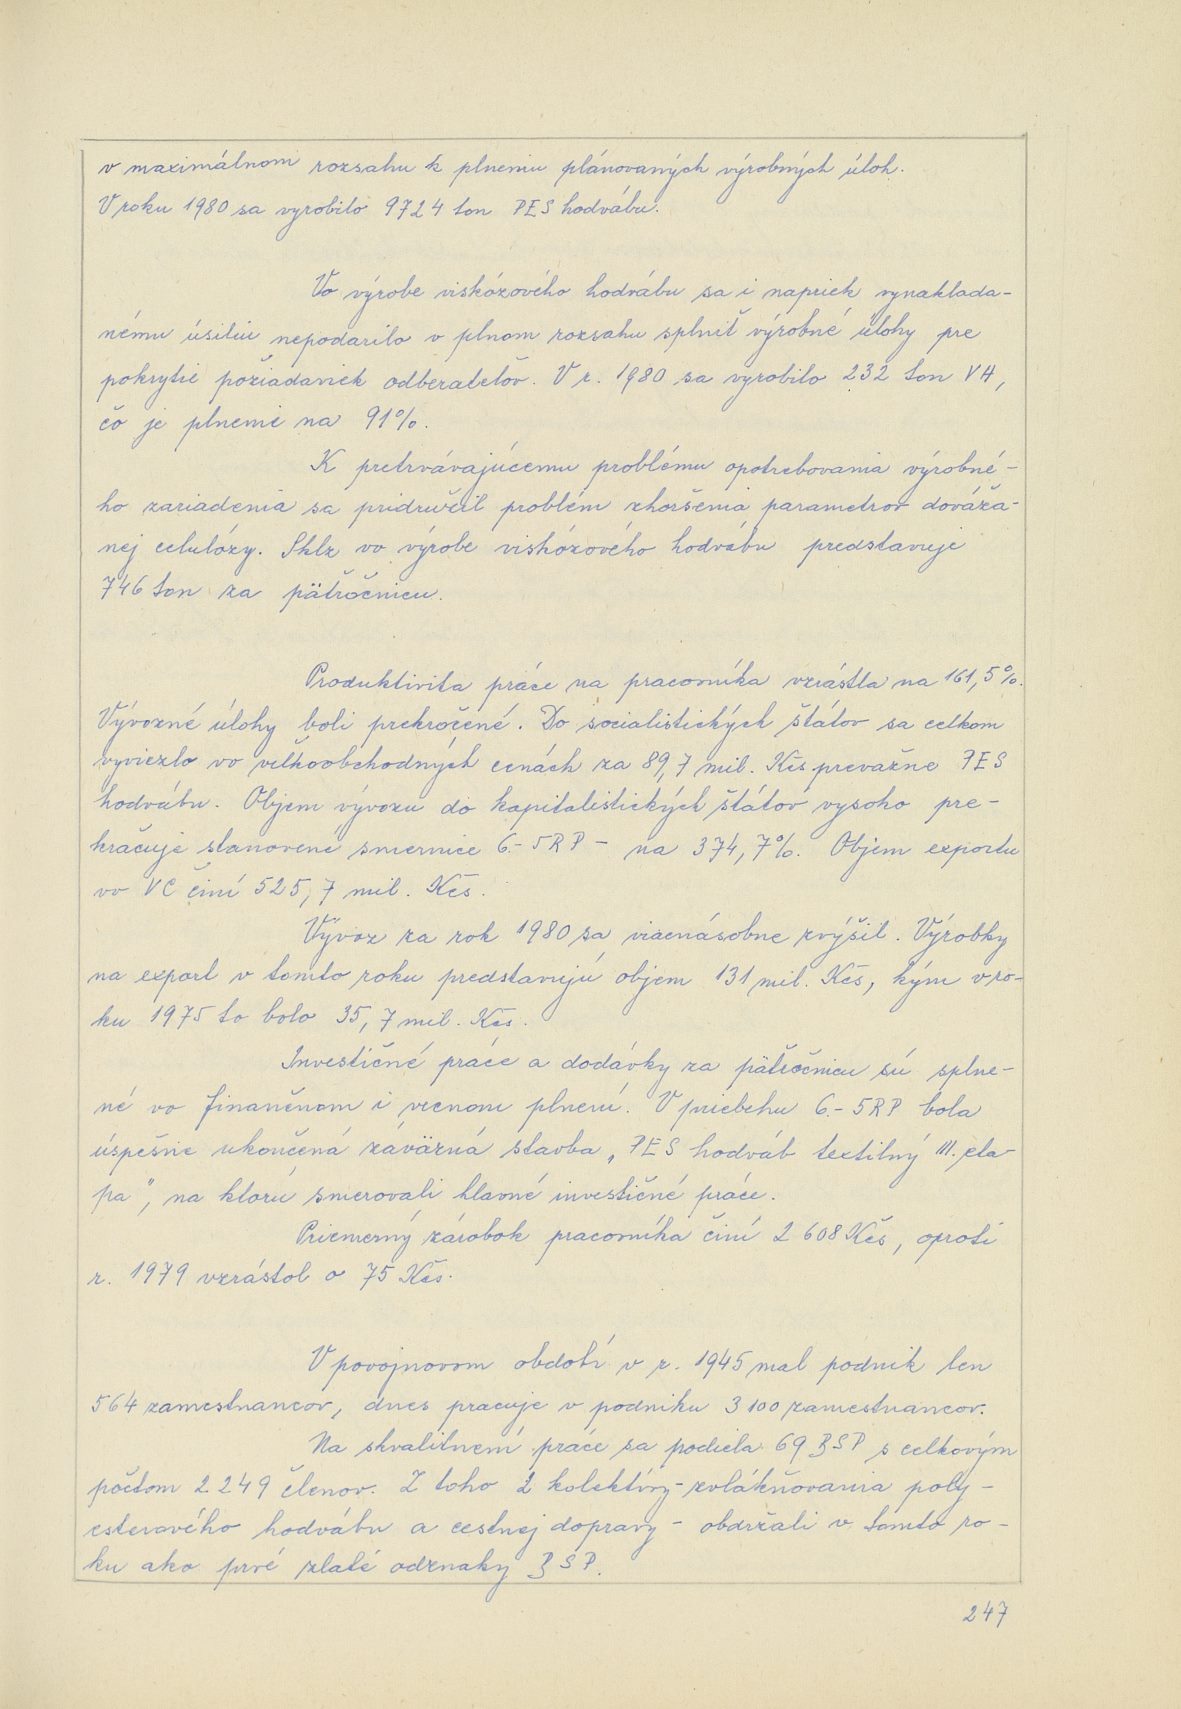 v maximálnom rozsahu k plneniu plánovaných výrobných úloh.
V roku 1980 sa vyrobilo 9724 ton PES hodvábu.
Vo výrobe viskózového hodvábu sa i napriek vynaklada-
nému úsiliu nepodarilo v plnom rozsahu splniť výrobné úlohy pre
pokrytie požiadaviek odberateľov. V r. 1980 sa vyrobilo 232 ton VH,
čo je plnenie na 91%.
K pretrvávajúcemu problému opotrebovania výrobné-
ho zariadenia sa pridružil problém zhoršenia parametrov dováža-
nej celulózy. Sklz vo výrobe viskózového hodvábu predstavuje
746 ton za päťročnicu.
Produktivita práce na pracovníka vzrástla na 161,5%.
Vývozné úlohy boli prekročené. Do socialistických štátov sa celkom
vyviezlo vo veľkoobchodných cenách za 89,7 mil. Kčs prevažne PES
hodvábu. Objem vývozu do kapitalistických štátov vysoko pre-
kračuje stanovené smernice 6.-5RP - na 374,7%. Objem exportu
vo VC činí 525,7 mil. Kčs.
Vývoz za rok 1980 sa viacnásobne zvýšil. Výrobky
na export v tomto roku predstavujú objem 131 mil. Kčs, kým v ro-
ku 1975 to bolo 35,7 mil. Kčs.
Investičné práce a dodávky za päťročnicu sú splne-
né vo finančnom i vecnom plnení. V priebehu 6.-5RP bola
úspešne ukončená záväzná stavba „PES hodváb textilný III. eta-
pa", na ktorú smerovali hlavné investičné práce.
Priemerný zárobok pracovníka činí 2 608 Kčs, oproti
r. 1979 vzrástol o 75 Kčs.
V povojnovom období v r. 1945 mal podnik len
564 zamestnancov, dnes pracuje v podniku 3 100 zamestnancov.
Na skvalitnení práce sa podieľa 69 BSP s celkovým
počtom 2 249 členov. Z toho 2 kolektívy - zvlákňovania poly-
esterového hodvábu a cestnej dopravy - obdržali v tomto ro-
ku ako prvé zlaté odznaky BSP.
247